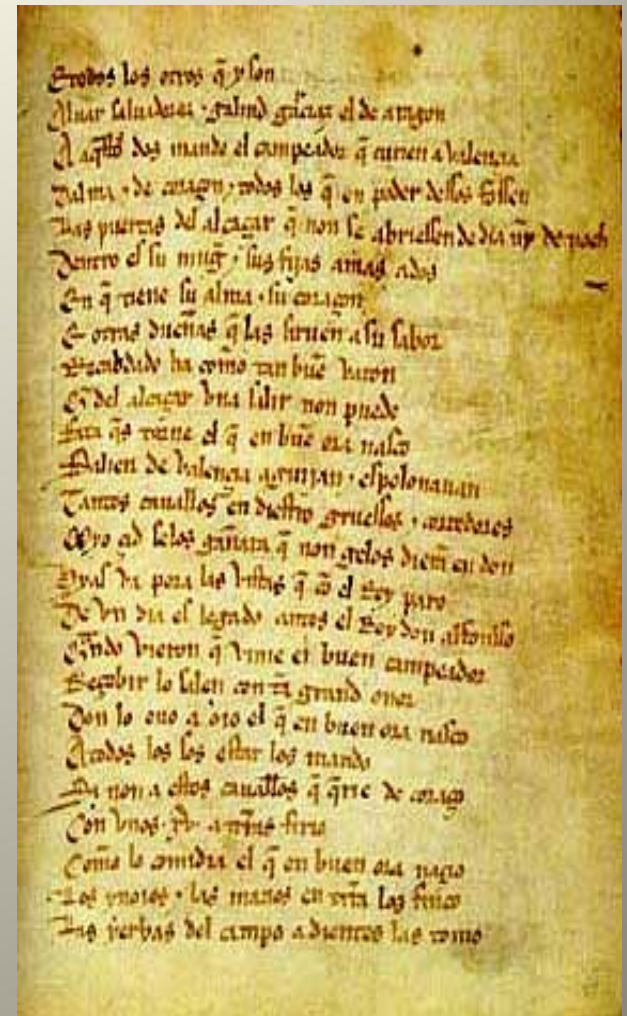 E todos los otros q̃ y son
Aluar saluadorez ⁊ galind garciaz el de aragon
A aq̃stos dos mando el campeador q̃ curien a valencia
Dalma ⁊ de coraçon ⁊ todos los q̃ en poder dessos fossen
Las puertas del alcaçar q̃ non se abriessen de dia nj̃ de noch
Dentro es su mugi̅ ⁊ sus fijas amas ados
En q̃ tiene su alma ⁊ su coraçon
E otras dueñas q̃ las siruen a su sabor
Recabdado ha como tan buẽ varon
Q̃ del alcaçar vna salir non puede
Fata q̃s torne el q̃ en buẽ ora nasco
Salien de valencia aguijan ⁊ espolonauan
Tantos cauallos en diestro gruessos ⁊ corredores
Myo çid selos gañara q̃ non gelos dierã en don
Hyas va pora las vistas q̃ cõ el Rey paro
De vn dia es legado antes el Rey don alfonsso
Q̃ndo vieron q̃ vinie el buen campeador
Reçebir lo salen con tã grand onor
Don lo ouo a oio el q̃ en buen ora nasco
A todos los sos estar los mando
Si non a estos caualłos q̃ q̃rie de coraço
Con vnos .xv. a tr̃r̃as firio
Como lo comidia el q̃ en buen ora naçio
Los ynoios ⁊ las manos en tr̃r̃a los finco
Las yerbas del campo a dientes las tomo